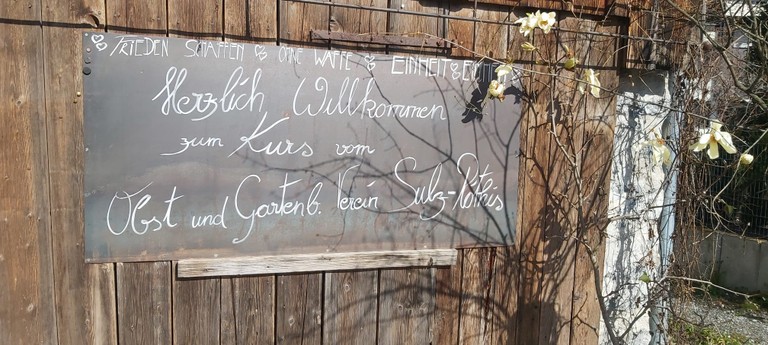 FRIEDEN SCHAFFEN OHNE WAFFE EINHEIT
Herzlich Willkommen
zum Kurs vom
Obst und Gartenb. Verein Sulz-Röthis